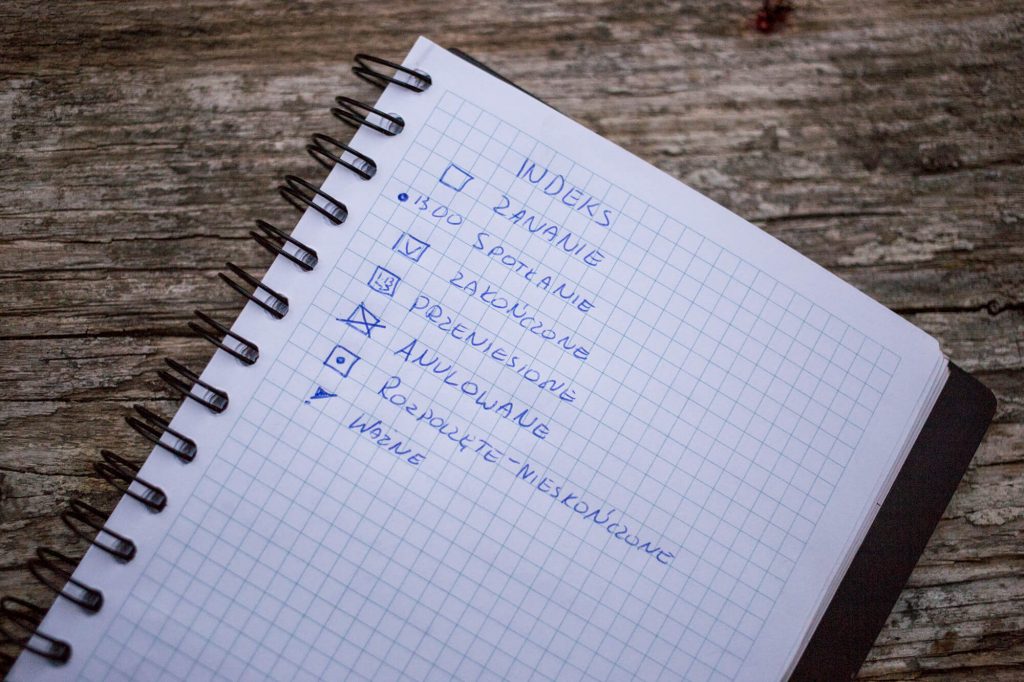 INDEKS
ZANANIE
13 00 SPOTKANIE
ZAKOŃCZONE
PRZENIESIONE
ANULOWANE
ROZPOCZĘTE-NIESKOŃCZONE
! WAŻNE